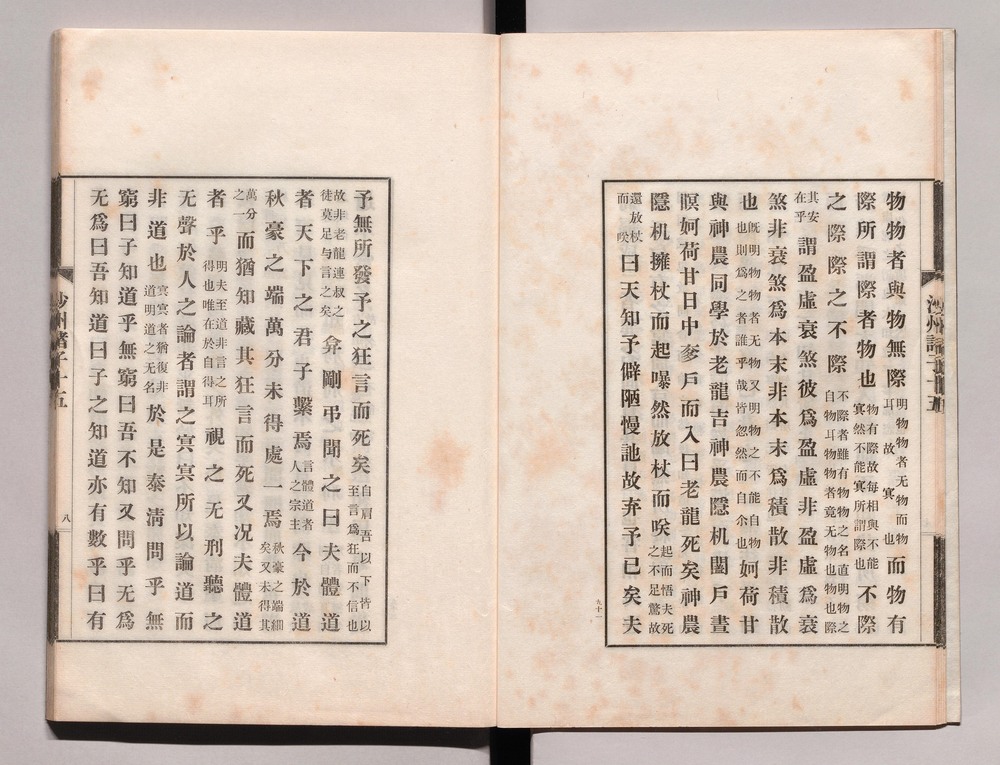 物物者與物無際明物物者无物而物耳故冥也而物有
際所謂際者物也物有際故每相與不能冥然不能冥所謂際也不際
之際際之不際不際者雖有物物之名直明物之自物耳物物者竟无物也物也際
其安在乎謂盈虛衰煞彼爲盈虛非盈虛爲衰
煞非衰煞爲本末非本末爲積散非積散
也既明物物者无物又明物之不能自物也則爲之者誰乎哉皆忽然而自尒也妸荷甘
與神農同學於老龍吉神農隱机闔戶晝
瞑妸荷甘日中奓戶而入曰老龍死矣神農
隱机擁杖而起嚗然放杖而㗛起而悟夫死之不足驚故
還放杖而㗛曰天知予僻陋慢訑故弃予已矣夫
九十一
予無所發予之狂言而死矣自肩吾以下皆以至言爲狂而不信也
故非老龍連叔之徒莫足与言之矣弇剛弔聞之曰夫體道
者天下之君子繫焉言體道者人之宗主今於道
秋豪之端萬分未得處一焉秋豪之端細矣又未得其
萬分之一而猶知藏其狂言而死又况夫體道
者乎明夫至道非言之所得也唯在於自得耳視之无刑聽之
无聲於人之論者謂之冥冥所以論道而
非道也冥冥者猶復非道明道之无名於是泰清問乎無
窮曰子知道乎無窮曰吾不知又問乎无爲
无爲曰吾知道曰子之知道亦有數乎曰有
八